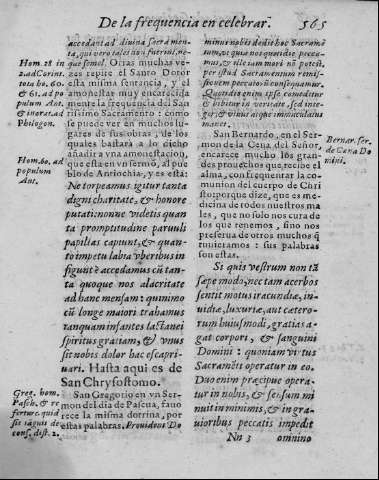 De la frequencia en celebrar. 565
accedant ad divina sacramen
ta, qui vero tales non fuerint, ne
que semel. Otras muchas ve
zes repite el Santo Dotor
esta misma sentencia, y el
amonestar muy encarecida
mente la frequencia del San
tissimo Sacramento: como
se puede ver en muchos lu
gares de sus obras, de los
quales bastarà a lo dicho
añadir a vna amonestacion,
que està en vn sermō, al pue
blo de Antiochia, y es està:
Ne torpeamus igitur tanta
digni charitate, & honore
putati: nonne videtis quan
ta promptitudine parvuli
papillas capiunt, & quan-
to impetu labia vberibus in
figunt? accedamus cū tan-
ta quoque nos alacritate
ad hanc mensam: quimino
cū longe maiori trahamus
tanquam infantes lactanei
spiritus gratiam, & vnus
sit nobis dolor hac esca pri-
vari. Hasta aqui es de
San Chrysostomo.
San Gregorio en vn Ser-
mon del dia de Pascua, favo
rece la misma dotrina, por
estas palabras. Providens Do
Hom. 28 in
2. ad Corint.
tota ho. 60.
& 61. ad po
pulum Ant.
& in orat. ad
Philogon.
Hom. 60. ad
populum
Ant.
Greg. hom.
Pasch. & re
fertur c. qui
sis sāguis de
cons. dist. 2.
minus nobis dedit hoc Sacramē
tum, ut quia nos quotidie pecca-
mus, & ille iam mori nō potest,
per istud Sacramentum remis-
sionem peccatorū consequamur.
Quotidie enim ipse comeditur
& bibitur in veritate, sed inte-
ger, & vnus atque immaculatus
manet.
San Bernardo, en el Ser-
mon de la Cena del Señor,
encarece mucho los gran-
des provechos que recibe el
alma, con frequentar la co-
munion del cuerpo de Chri
sto: porque dize, que es me-
dicina de todos nuestros ma
les, que no solo nos cura de
los que tenemos, sino nos
preserva de otros muchos q̄
tuvieramos: sus palabras
son estas.
Si quis vestrum non tā
sæpe modo, nec tam acerbos
sentit motus iracundiæ, in-
vidiæ, luxuriæ, aut cætero-
rum huiusmodi, gratias a-
gat corpori, & sanguini
Domini: quoniam virtus
Sacramēti operatur in eo.
Duo enim præcipue opera-
tur in nobis, & sensum mi
nuit in minimis, & in gra
vioribus peccatis impedit
Bernar. ser.
de Cæna Do
mini.
Nn 3 omnino